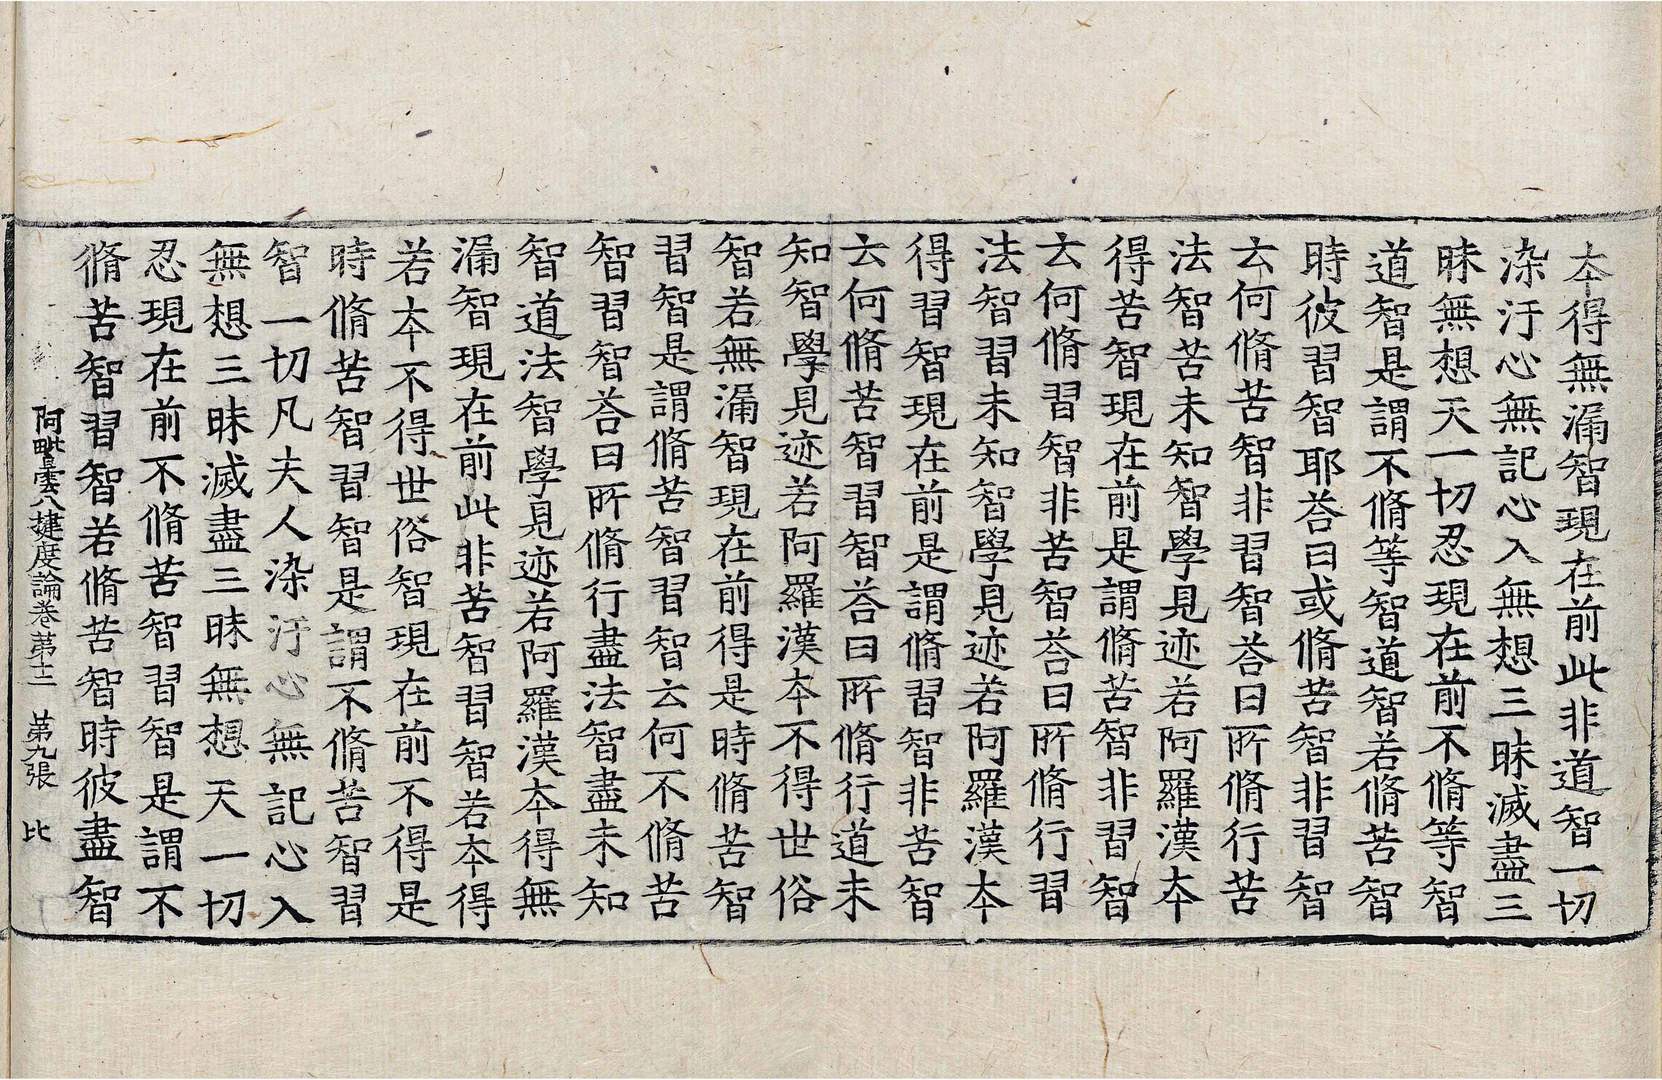 夲得無漏智現在前此非道智一切
染汙心無記心入無想三昧滅盡三
昧無想天一切忍現在前不脩等智
道智是謂不脩等智道智若脩苦智
時彼習智耶荅曰或脩苦智非習智
云何脩苦智非習智荅曰所脩行苦
法智苦未知智學見迹若阿羅漢夲
得苦智現在前是謂脩苦智非習智
云何脩習智非苦智荅曰所脩行習
法智習未知智學見迹若阿羅漢夲
得習智現在前是謂脩習智非苦智
云何脩苦智習智荅曰所脩行道未
知智學見迹若阿羅漢夲不得世俗
智若無漏智現在前得是時脩苦智
習智是謂脩苦智習智云何不脩苦
智習智荅曰所脩行盡法智盡未知
智道法智學見迹若阿羅漢夲得無
漏智現在前此非苦智習智若夲得
若夲不得世俗智現在前不得是
時脩苦智習智是謂不脩苦智習
智一切凡夫人染汙心無記心入
無想三昧滅盡三昧無想天一切
忍現在前不脩苦智習智是謂不
脩苦智習智若脩苦智時彼盡智
阿毗曇八揵度論卷第十二 第九張 比